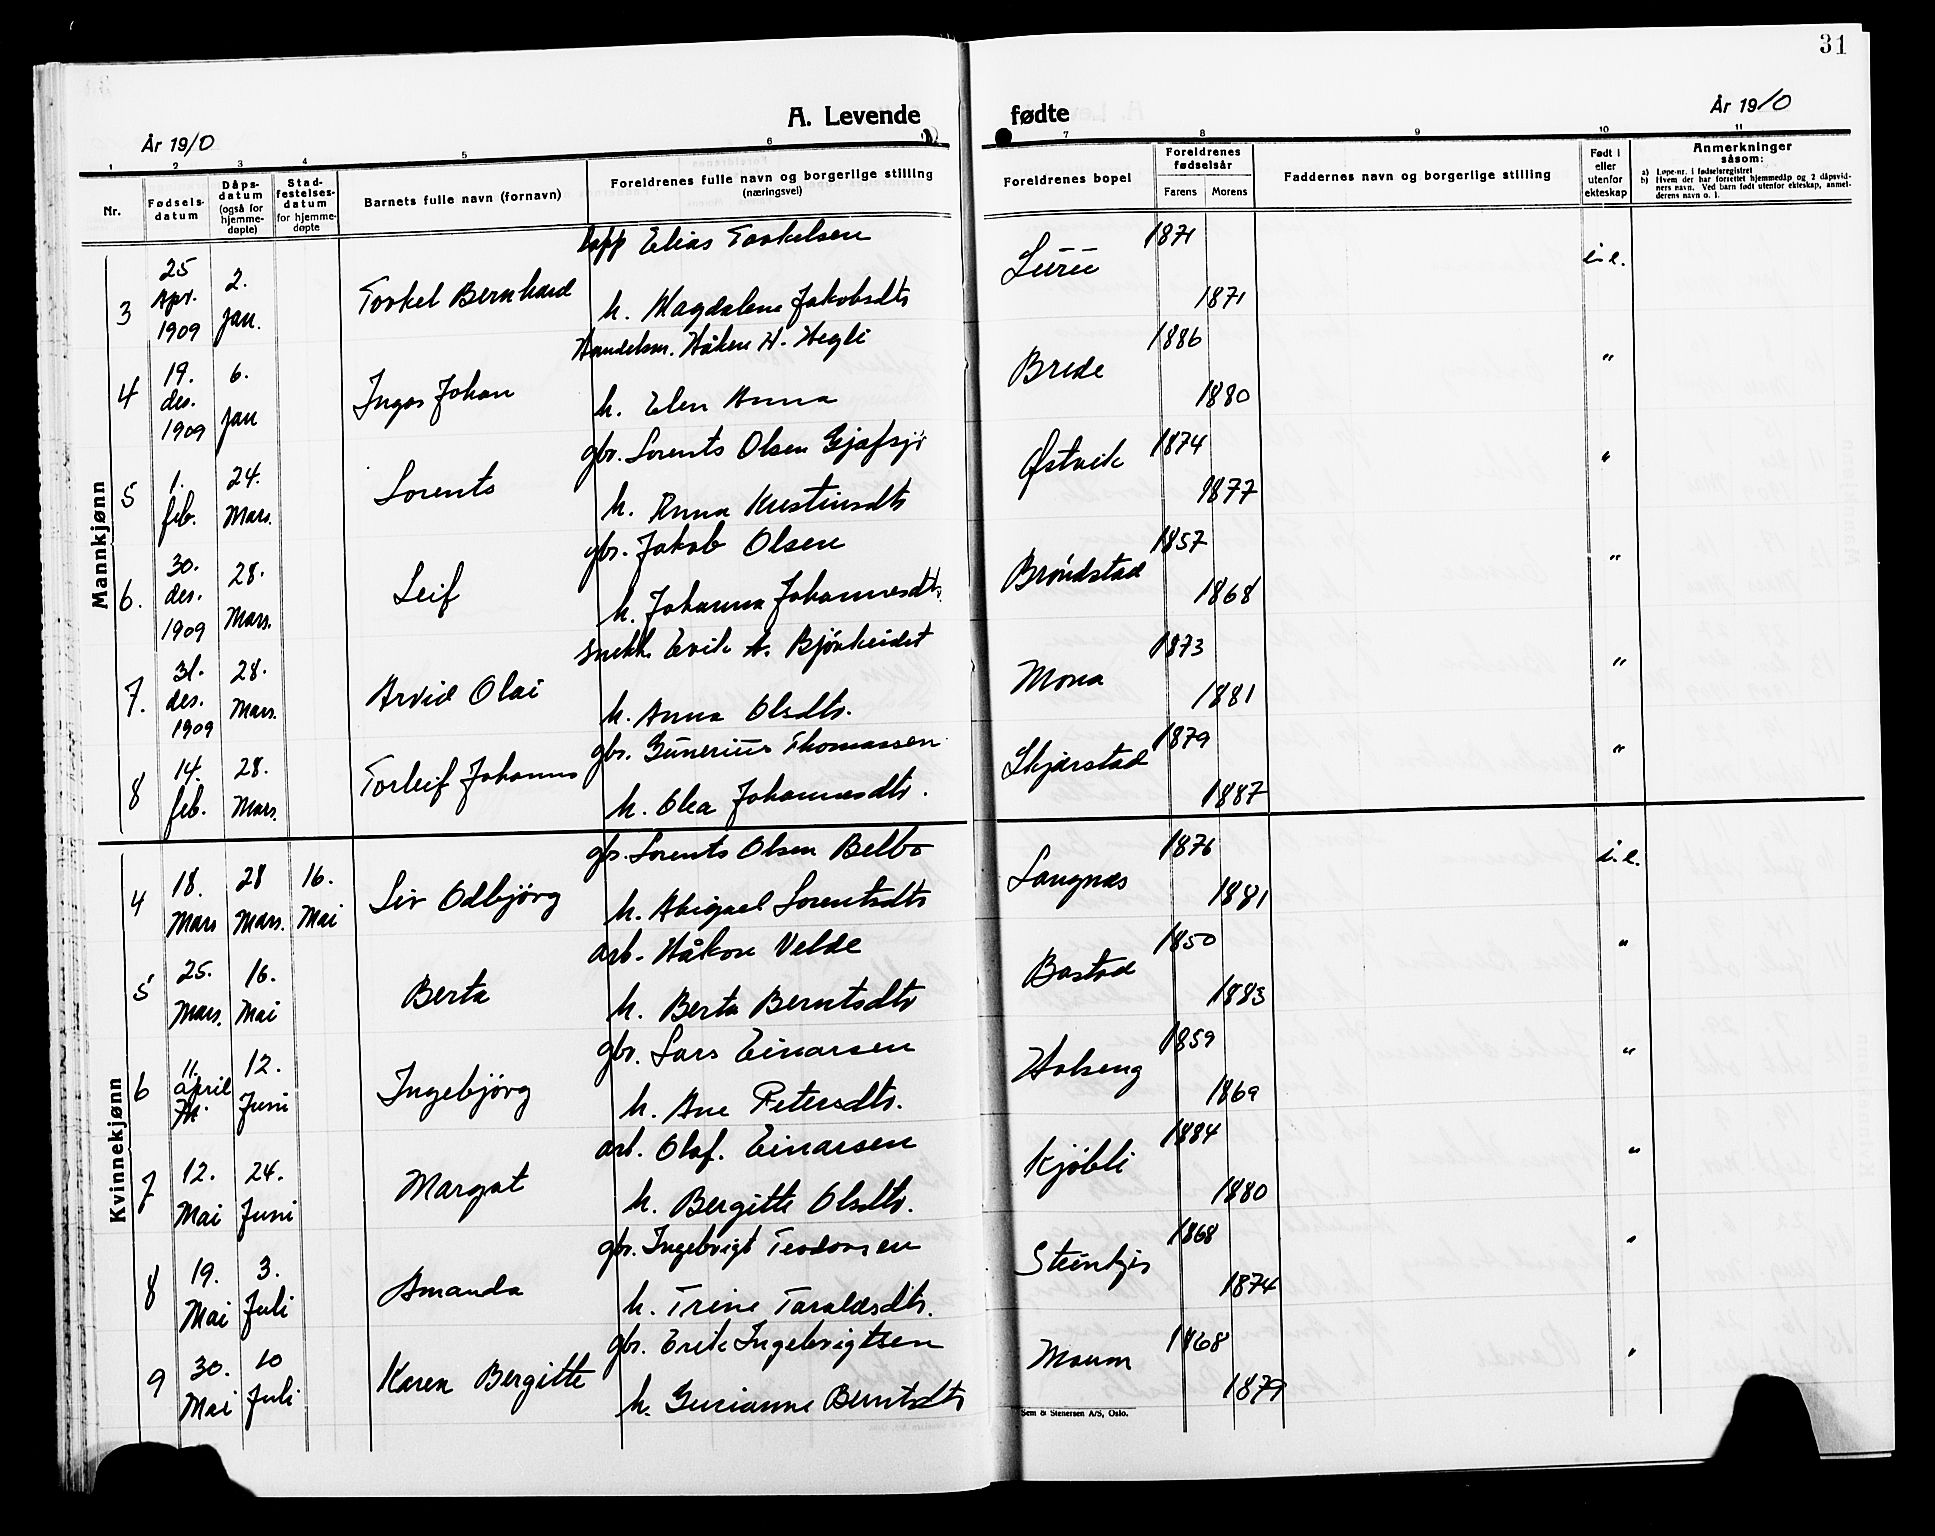 31
A. Levende fødte
År 1910
År 1910
1 2 3 4 5 6 7 8 9 10 11
Nr.
Fødsels-datum
Dåps-datum (også for hjemme-døpte)
Stad-festelses-datum for hjemme-døpte
Barnets fulle navn (fornavn)
Foreldrenes fulle navn og borgerlige stilling (næringsvei)
Foreldrenes bopel
Foreldrenes fødselsår
Farens Morens
Faddernes navn og borgerlige stilling
Født i eller utenfor ekteskap
Anmerkninger såsom:
a) Løpe-nr. i fødselsregistret
b) Hvem der har forrettet hjemmedåp og 2 dåpsvidners navn. Ved barn født utenfor ekteskap, anmelderens navn o. l.
Mannkjønn
3 25 Apr. 1909 2. jan. Torkel Bernhard lapp Elias Torkelsen
h. Magdalene Jakobsdtr Luru 1871 1871 i.e.
4 19. des. 1909 6. jan Ingar Johan Handelsm. Håken H. Hegli
h. Elen Anna Brede 1886 1880 "
5 1. feb. 24. Mars. Lorents gbr. Lorents Olsen Gjæfsjø
h. Anna Kristinsdtr Østvik 1874 1877 "
6. 30. des. 1909 28. Mars. Leif gbr. Jakob Olsen
h. Johanna Johannesdtr. Brøndstad 1857 1868 "
7. 31. des. 1909 28. Mars. Arvid Olai snekk. Erik A. Bjørkeidet
h. Anna Olsdtr. Mona 1873 1881 "
8 14. feb. 28. Mars. Torleif Johannes gbr. Gunerius Thomassen
h. Olea Johannesdtr. Skjærstad 1879 1887 "
Kvinnekjønn
4 18. Mars 28 Mars. 16. Mai Liv Odbjörg gbr. Lorents Olsen Belbo
h. Abigael Lorentsdtr Langnæs 1876 1881 i.e.
5 25. Mars. 16. Mai Berta arb. Håkon Velde
h. Berta Berntsdtr Bostad 1850 1883 "
6 11. april 12. Juni Ingebjörg gbr. Lars Einarsen
h. Ane Petersdtr. Holseng 1859 1869 "
7 12. Mai 24. Juni Margot arb. Olaf. Einarsen
h. Bergitte Olsdtr. Kjøbli 1884 1880 "
8 19. Mai 3. Juli Amanda gbr. Ingebrigt Teodorsen
h. Trine Taraldsdtr. Steinkjer 1868 1874 "
9 30. Mai 10 Juli Karen Bergitte gbr. Erik Ingebrigtsen
h. Gurianne Berntsdtr Moum 1868 1879 "
Sem & Stenersen A/S, Oslo.